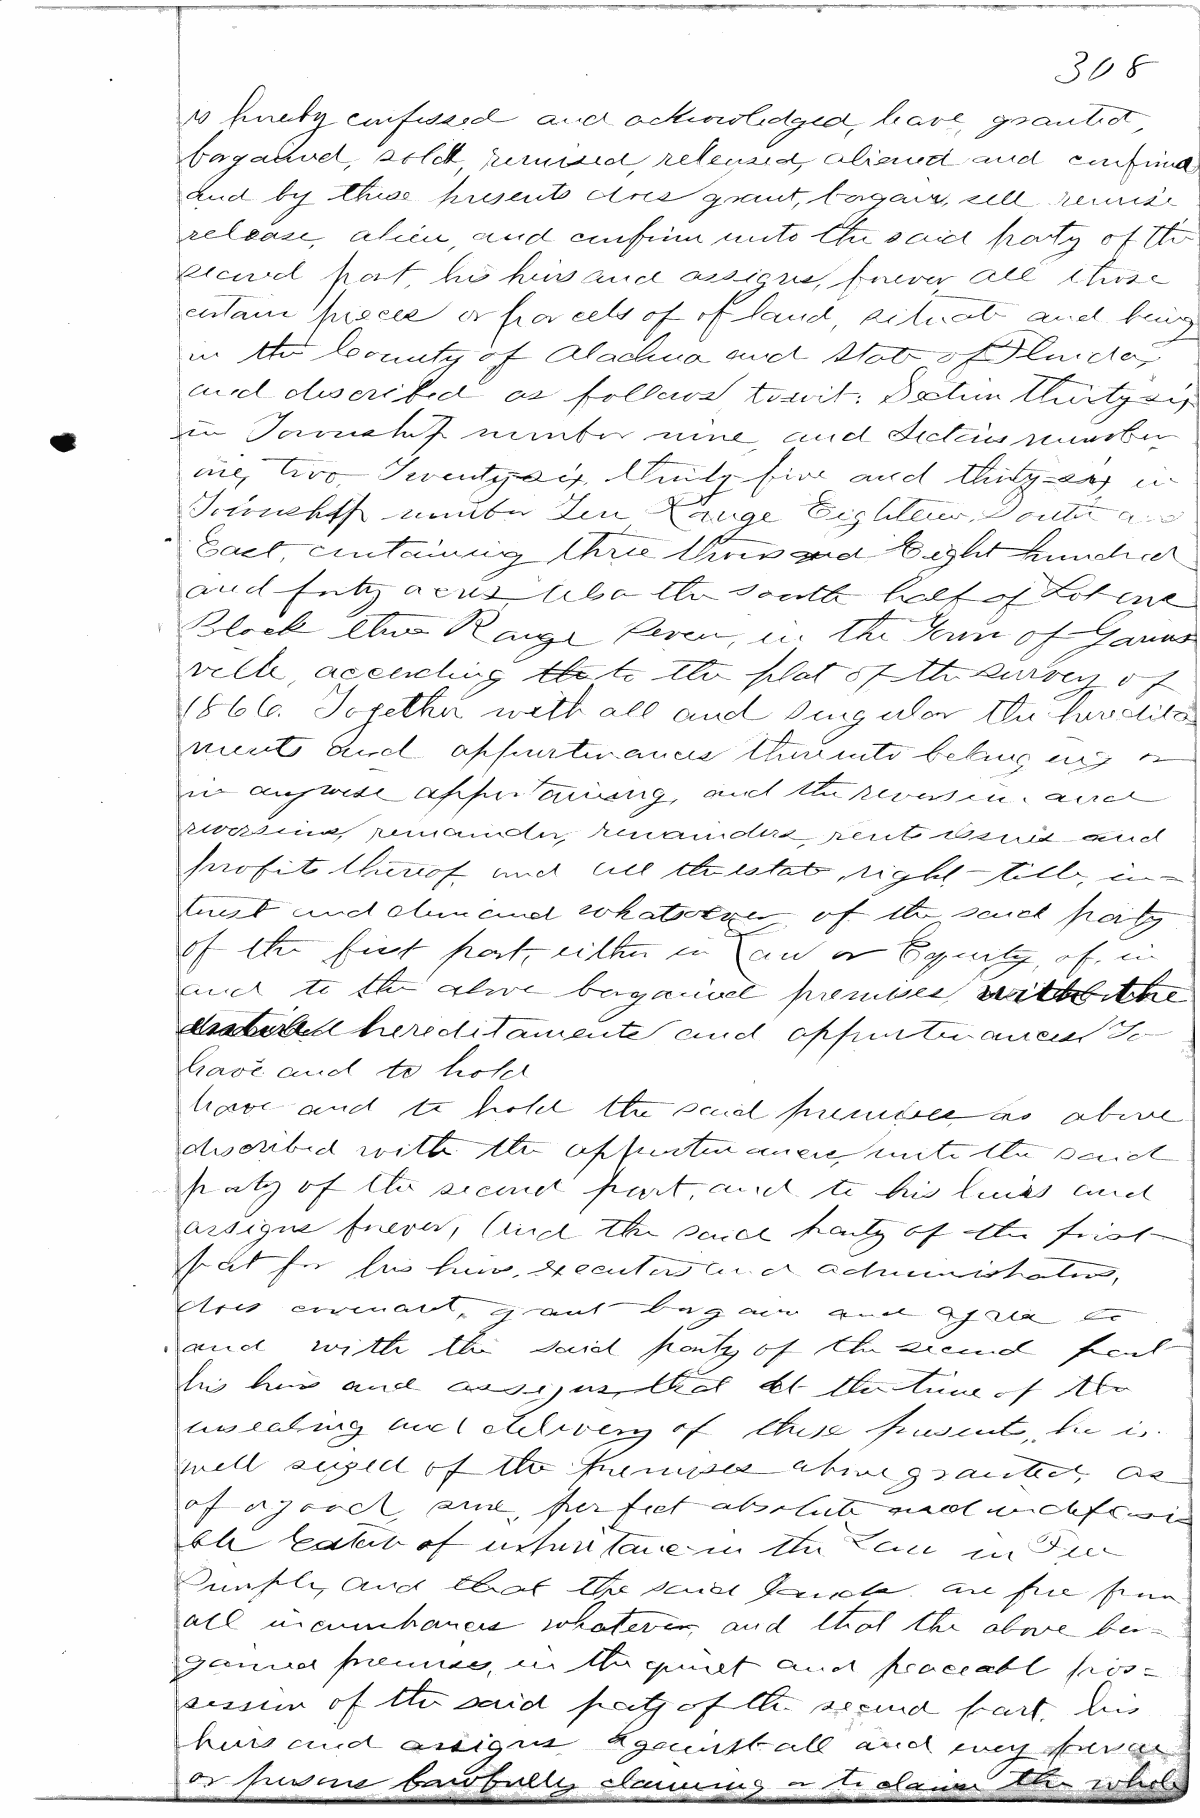 308
is hereby confessed and acknowledged, have, granted,
bargained, sold, remised, released, aliened and confirmed
and by these presents does grant, bargain, sell, remise
release, alien, and confirm unto the said party of the
second part, his heirs and assigns, forever, all those
certain pieces or parcels of of land, situate and being
in the County of Alachua and State of Florida,
and described as follows towit: Section thirty six
in Township number nine, and Sections number
one, two, Twenty-six, thirty five and thirty-six in
Township number Ten Range Eighteen, South and
East, containing three thousand Eight hundred
and forty acres, Also the south half of Lot one
Block three Range Seven, in the Town of Gaines
ville, according the to the plat of the survey of
1866. Together with all and singular the heredita
ments and appurtenances thereunto belonging or
in anywise appertaining, and the reversion and
reversions, remainder, remainders, rents issues and
profits thereof, and all the estate, right - title, in=
terest and demand whatsoever, of the said party
of the first part, either in Law or Equity, of, in
and to the above bargained premises with the
hereditaments and appurtenances To
have and to hold
have and to hold the said premises as above
described with the appurtenances, unto the said
party of the second part, and to his heirs and
assigns forever, And the said party of the first
part for his heirs, executors and administrators,
does covenant, grant bargain and agree to
and with the said party of the second part
his heirs and assigns, that at the time of the
ensealing and delivery of these presents, he is
well seized of the premises above granted, as
of a good, sure, perfect absolute and indefeasi
ble Estate of inheritance in the Law in Fee
Simple, and that the said lands are free from
all incumbrances whatever, and that the above bar=
gained premises, in the quiet and peaceabl pos=
session of the said party of the second part, his
heirs and assigns, against all and every person
or persons lawfully claiming or to claim the whole